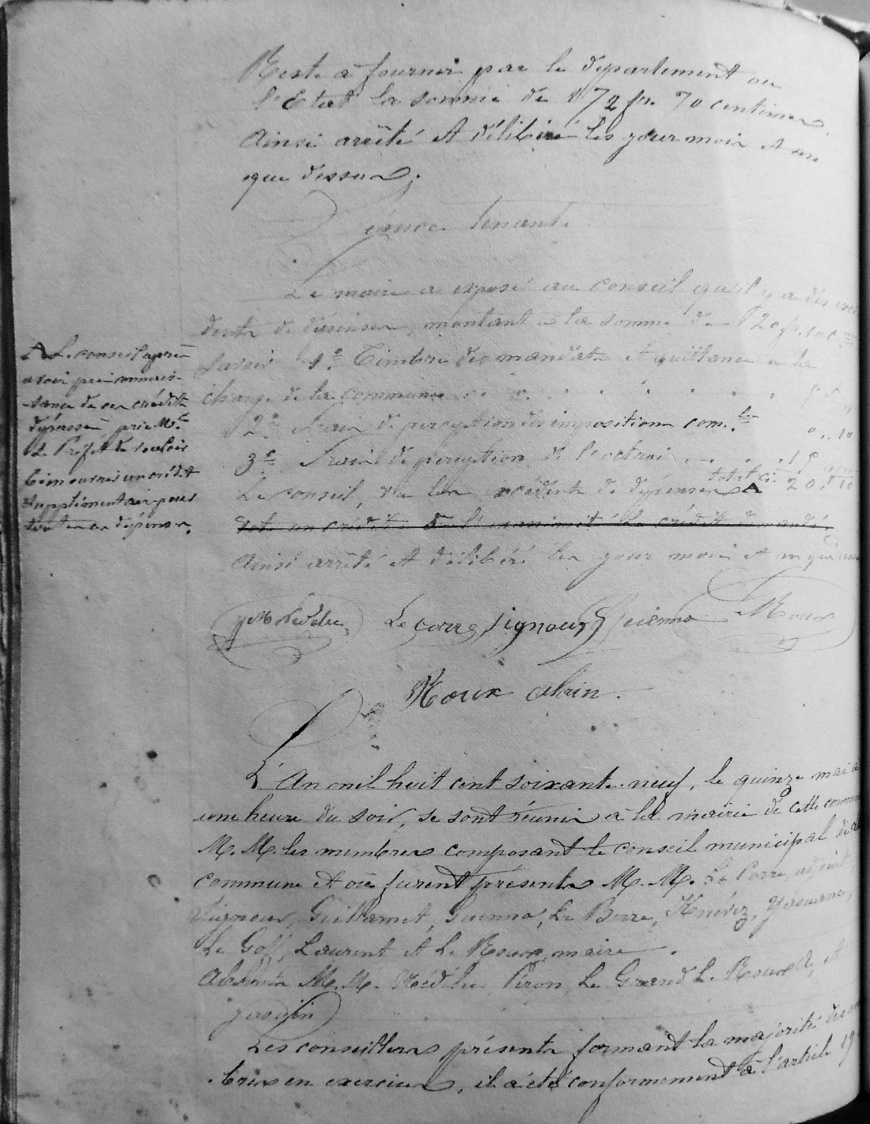 Reste à fournir par le département ou
l'État la somme de 172 fr. 70 centimes
Ainsi arrêté et délibéré les jour mois et an
que dessus.
Séance tenante
Le maire a exposé au conseil qu'il y a des excé
dents de dépenses, montant à la somme de 20 fr. 10 c
savoir 1° Timbre des mandats et quittances à la
charge de la commune
2° Frais de perception des impositions com.les 0 .. 10
3° Frais de perception de l'octroi
total ci. 20. 10
Le conseil, vu les excédents de dépenses A
A Le conseil après
avoir pris connais-
sance de ces crédits
dépassés prie Mr.
le Préfet de vouloir
bien ouvrir un crédit
supplémentaire pour
toutes ces dépenses.
vote un crédit
Ainsi arrêté et délibéré les jour mois et an que
Le Corre Signour Guenno Le Roux
Roux alain.
L'An mil huit cent soixante-neuf, le quinze mai à
une heure du soir, se sont réunis à la mairie de cette commune
M. M. les membres composant le conseil municipal de la
commune et où furent présents M. M. Le Corre, adjoint
Signour, Guillamet, Guenno, Le Berre, Knévez,
Le Goff, Laurent et Le Roux, maire.
Absents M. M. Nédélec, Piron, Le Grand L. et
Jossin
Les conseillers présents formant la majorité des mem
bres en exercice, il a été conformément à l'article 19